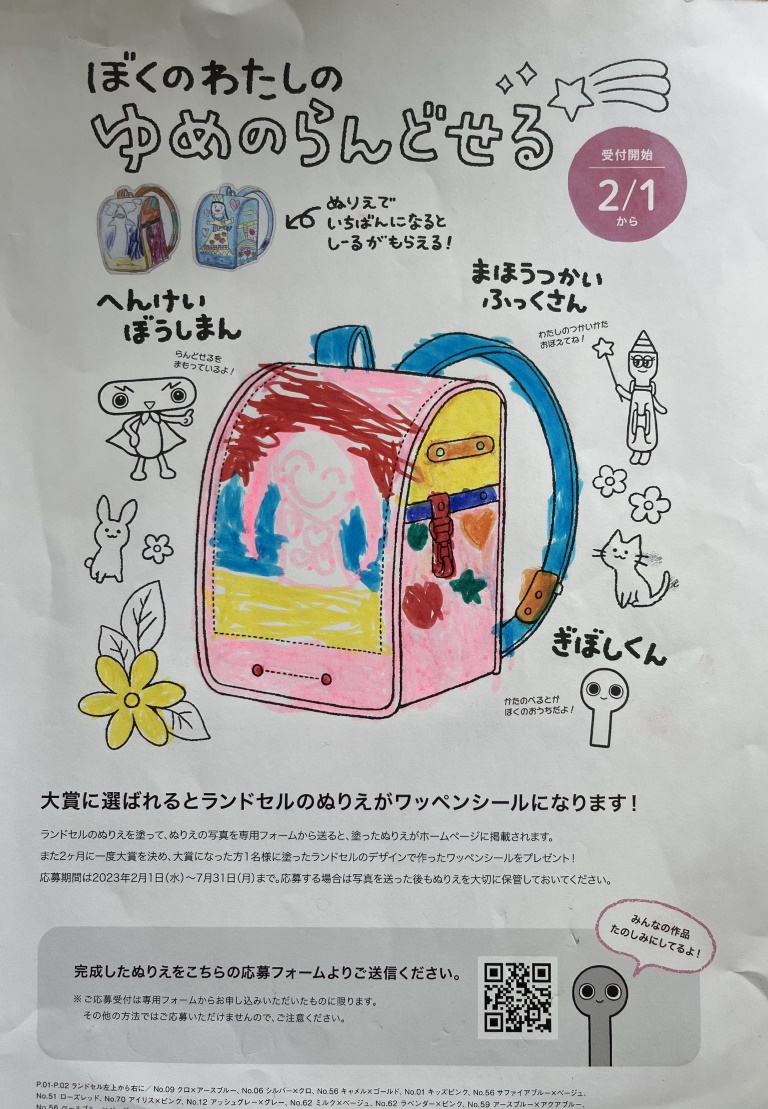 ぼくのわたしの
ゆめのらんどせる
受付開始
2/1
から
ぬりえで
いちばんになると
しーるがもらえる！
へんけい
ぼうしまん
らんどせるを
まもっているよ！
まほうつかい
ふっくさん
わたしのつかいかた
おぼえてね！
ぎぼしくん
かたのべるとが
ぼくのおうちだよ！
大賞に選ばれるとランドセルのぬりえがワッペンシールになります！
ランドセルのぬりえを塗って、ぬりえの写真を専用フォームから送ると、塗ったぬりえがホームページに掲載されます。
また2ヶ月に一度大賞を決め、大賞になった方1名様に塗ったランドセルのデザインで作ったワッペンシールをプレゼント！
応募期間は2023年2月1日(水)〜7月31日(月)まで。応募する場合は写真を送った後もぬりえを大切に保管しておいてください。
みんなの作品
たのしみにしてるよ！
完成したぬりえをこちらの応募フォームよりご送信ください。
※ご応募受付は専用フォームからお申し込みいただいたものに限ります。
その他の方法ではご応募いただけませんので、ご注意ください。
P.01-P.02 ランドセル左上から右に／ No.09 クロ×アースブルー、No.06 シルバー×クロ、No.56 キャメル×ゴールド、No.01 キッズピンク、No.56 サファイアブルー×ベージュ、
No.51 ローズレッド、No.70 アイリス×ピンク、No.12 アッシュグレー×グレー、No.62 ミルク×ベージュ、No.62 ラベンダー×ピンク、No.59 アースブルー×アクアブルー、